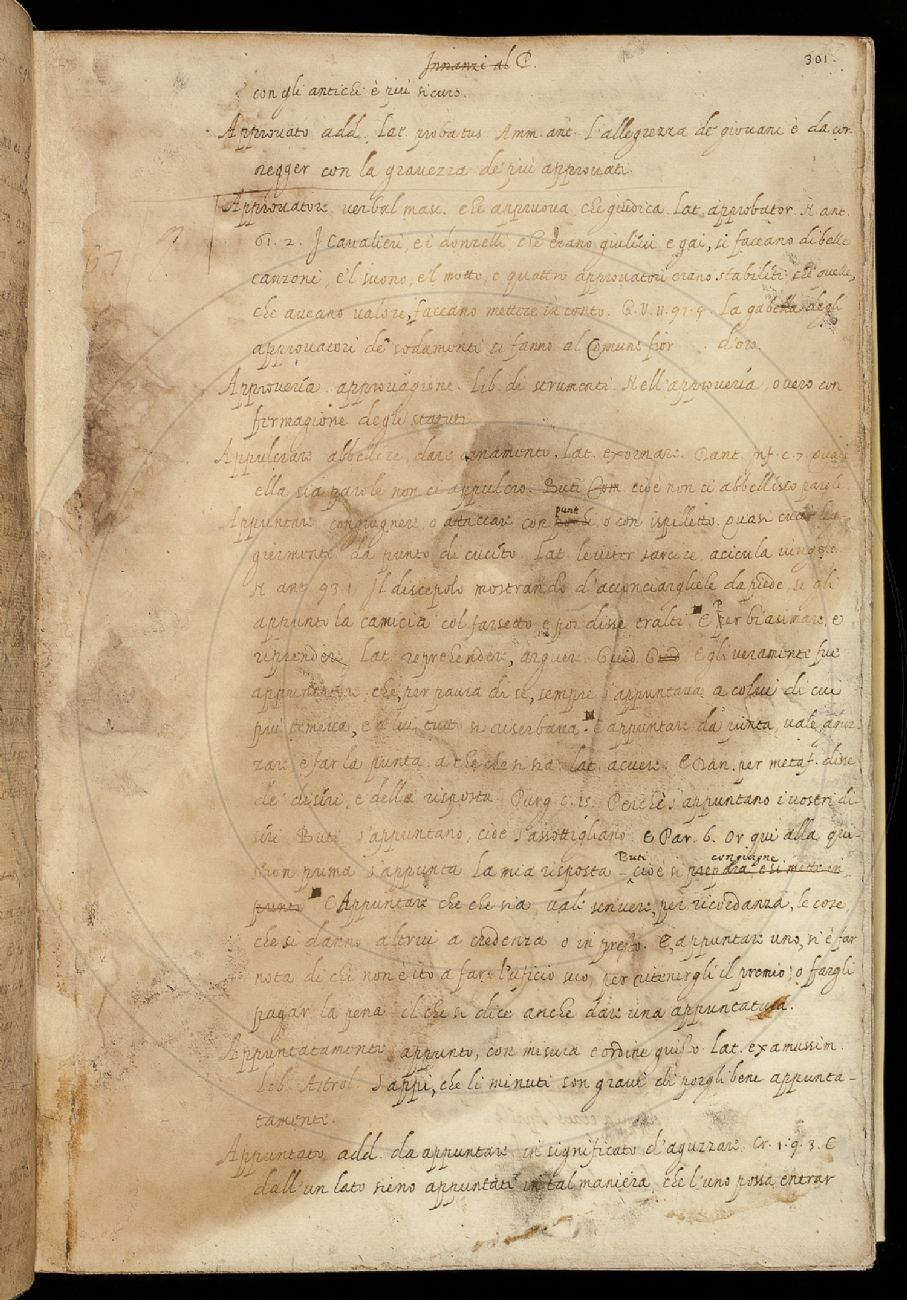 Innanzi al P.
301.
con gli antichi è più sicuro.
Approuato add. Lat. probatus Amm. ant. L'allegrezza de' giouani è da cor
regger con la grauezza de' più approuati.
Approuatore verbal masc. che approua, che giudica. Lat. approbator. N. ant.
61. 2. I Caualieri, e i donzelli, che erano giuliui e gai, si faceano di belle
canzoni, e 'l suono, e 'l motto, e quattro approuatori erano stabiliti, che quelle,
che aueano valore, faceano mettere in conto. G. V. 11. 91. 9. La gabella degli
approuatori de' sodamenti si fanno al Comune fior . . d'oro.
Approueria. approuagione. Lib. di strumenti. Nell'approueria, o uero con
fermagione degli statuti
Appulcrare abbellire, dare ornamento. Lat. exornare. Dant. Inf. c. 7. Quale
ella sia parole non ci appulcro. Buti Com cioè non ci abbellisco parole.
Appuntare congiugnere, o attaccare con punti, o con ispilletto, quasi cucir leg-
giermente da punto di cucito. Lat. leuiter sarcire, acicula iungere.
N. ant. 93. 1. Il discepolo mostrando d'acconciargliele da piede, si gli
appunto la camicia col farsetto, e poi disse tralti. E Per biasimare, e
riprendere. Lat. reprehendere, arguere. Guid. Guid Egli ueramente fue
appuntatore che, per paura di se, sempre s'appuntaua a colui di cui
più temeua, e a lui tutto si riserbaua. E appuntare da punta, uale aguz-
zare e far la punta a che che si sia lat. acuere. E Dan. per metaf. disse
de' disiri, e della risposta Purg. c. 15. Perchè s'appuntano i uostri di
siri Buti s'appuntano, cioè s'assottigliano E Par. 6. Or qui alla qui-
stion prima s'appunta La mia risposta Buti cioè si congiugne prenda, e si mette in
punti E Appuntare che che sia, uale scriuere, per ricordanza, le cose
che si danno altrui a credenza o in presto. E, appuntare uno, si è far
nota di chi non è ito a far l'uficio suo, per ritenergli il premio, o fargli
pagar la pena il che si dice anche dare una appuntatura.
Appuntatamente appunto, con misura e ordine giusto. Lat. examussim.
Lib. Astrol. Sappi, che li minuti son graui di porgli bene appunta-
tamente.
Appuntato add. da appuntare in significato d'aguzzare. Cr. 1. 9. 3. E
dall'un lato sieno appuntati in tal maniera, che l'uno possa entrar